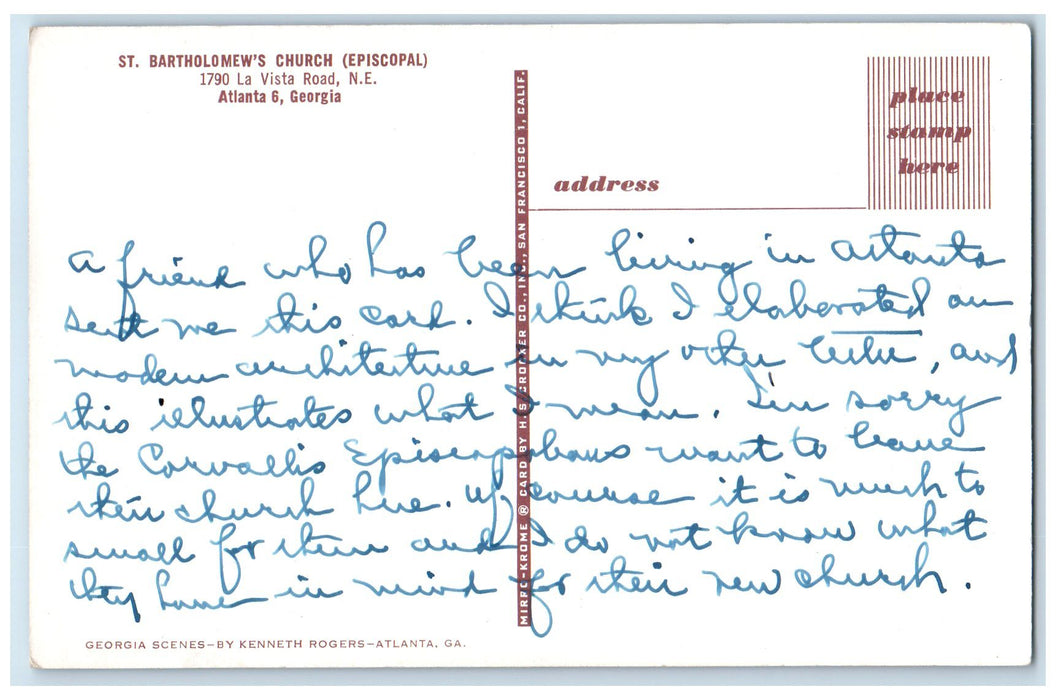 ST. BARTHOLOMEW'S CHURCH (EPISCOPAL)
1790 La Vista Road, N.E.
Atlanta 6, Georgia
place
stamp
here
address
MIRRO-KROME ® CARD BY H.S. CROCKER CO., INC., SAN FRANCISCO 1, CALIF.
A friend who has been living in Atlanta
sent me this card. I think I elaborated on
modern architecture in my other letter, and
this illustrates what I mean. I'm sorry
the Corvallis Episcopalians want to leave
their church here. Of course it is much to
small for them and I do not know what
they have in mind for their new church.
GEORGIA SCENES—BY KENNETH ROGERS—ATLANTA, GA.